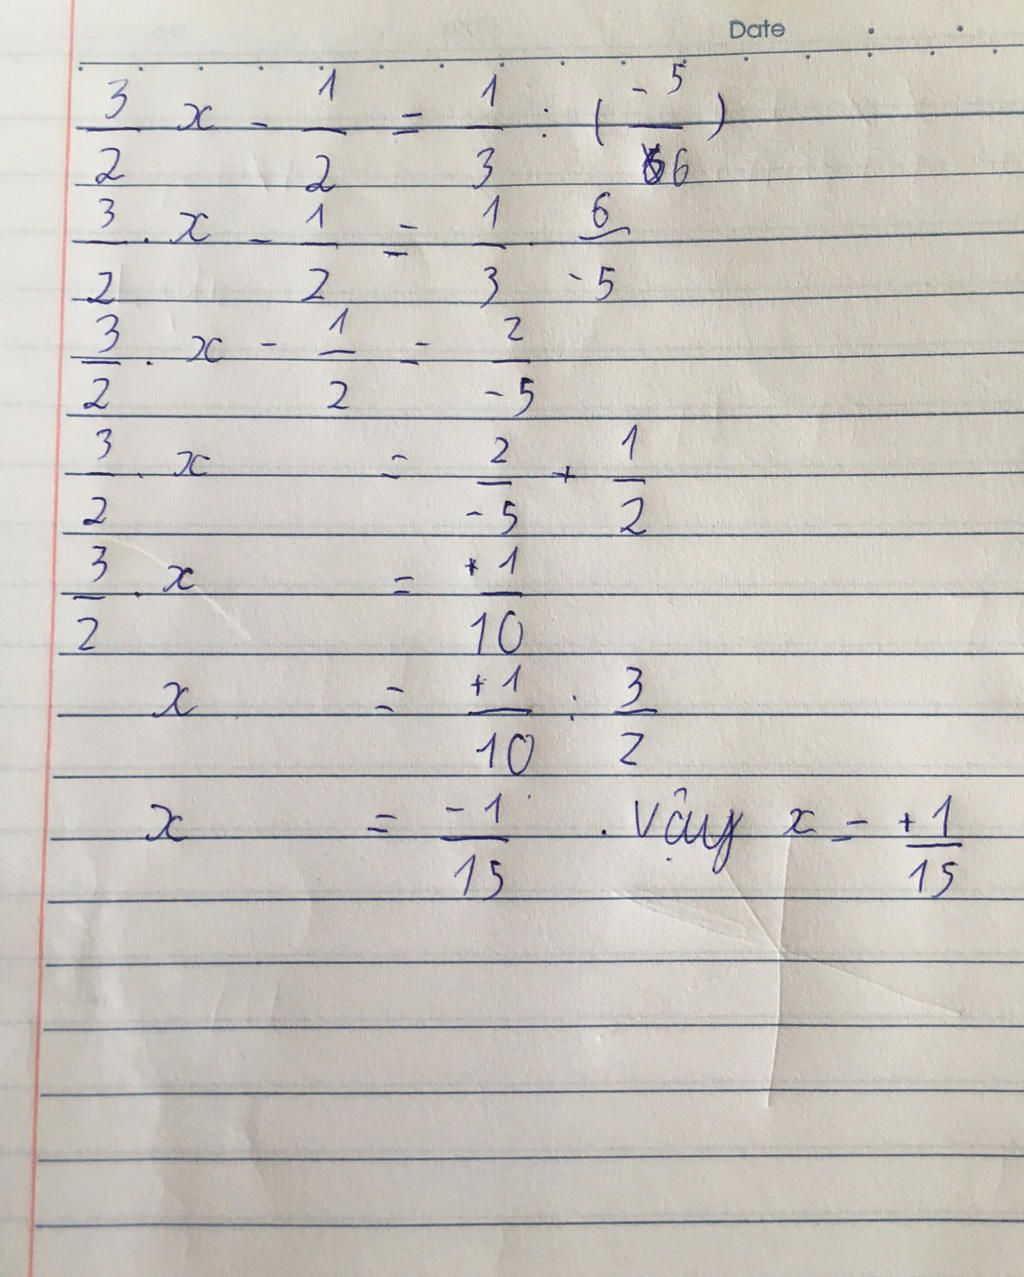 Date
3/2 x - 1/2 = 1/3 : (-5/6)
3/2 . x - 1/2 = 1/3 . 6/-5
3/2 . x - 1/2 = 2/-5
3/2 . x = 2/-5 + 1/2
3/2 . x = +1/10
x = +1/10 : 3/2
x = -1/15 . Vậy x = +1/15